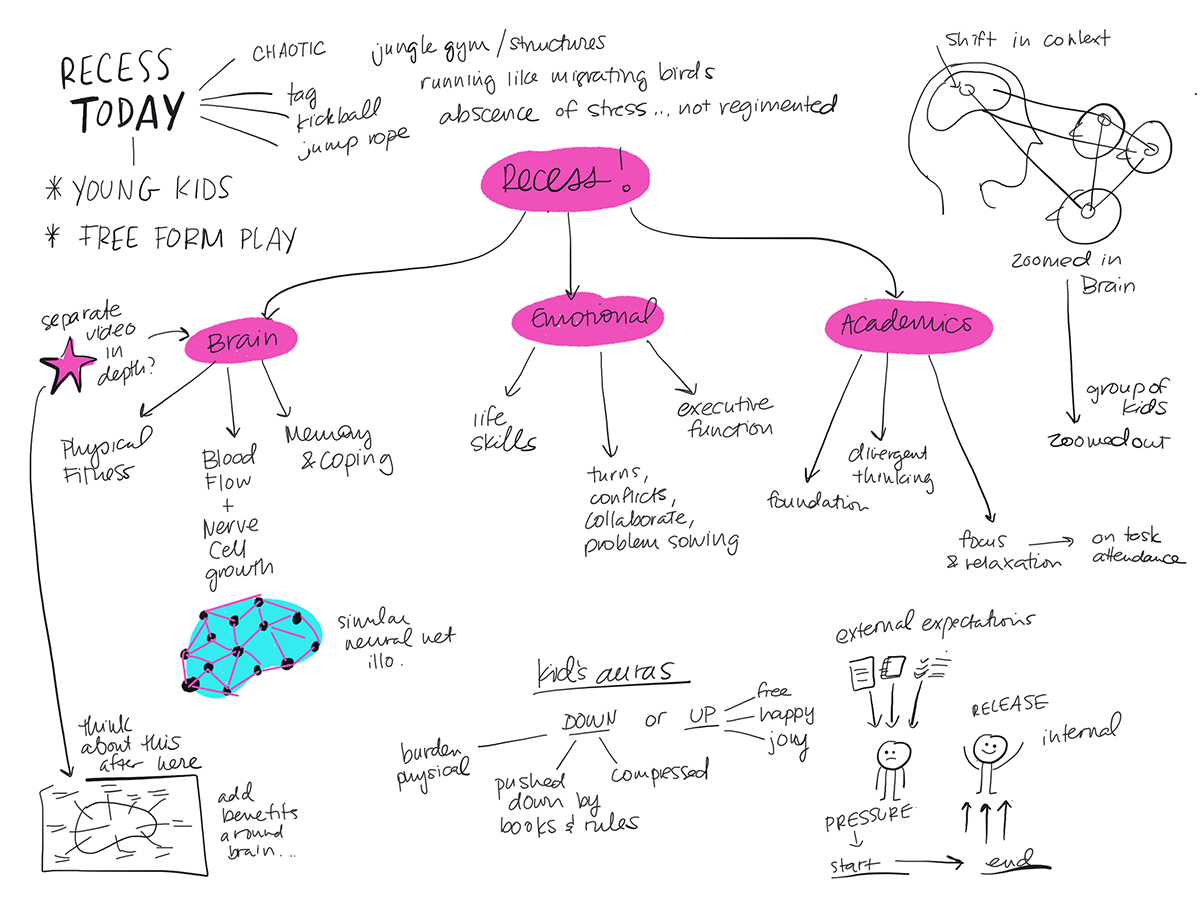 RECESS
TODAY
CHAOTIC
tag
kickball
jump rope
jungle gym / structures
running like migrating birds
abscence of stress... not regimented
* YOUNG KIDS
* FREE FORM PLAY
Shift in context
Recess!
zoomed in
Brain
group of
kids
zoomed out
separate
video
in
depth?
Brain
Emotional
Academics
Physical
Fitness
Blood
Flow
+
Nerve
Cell
growth
Memory
& Coping
life
skills
turns,
conflicts,
collaborate,
problem solving
executive
function
foundation
divergent
thinking
focus
& relaxation
on task
attendance
similar
neural net
illo.
think
about this
after here
add
benefits
around
brain...
kid's auras
DOWN or UP
free
happy
joy
burden
physical
pushed
down by
books & rules
compressed
external expectations
PRESSURE
start
RELEASE
internal
end